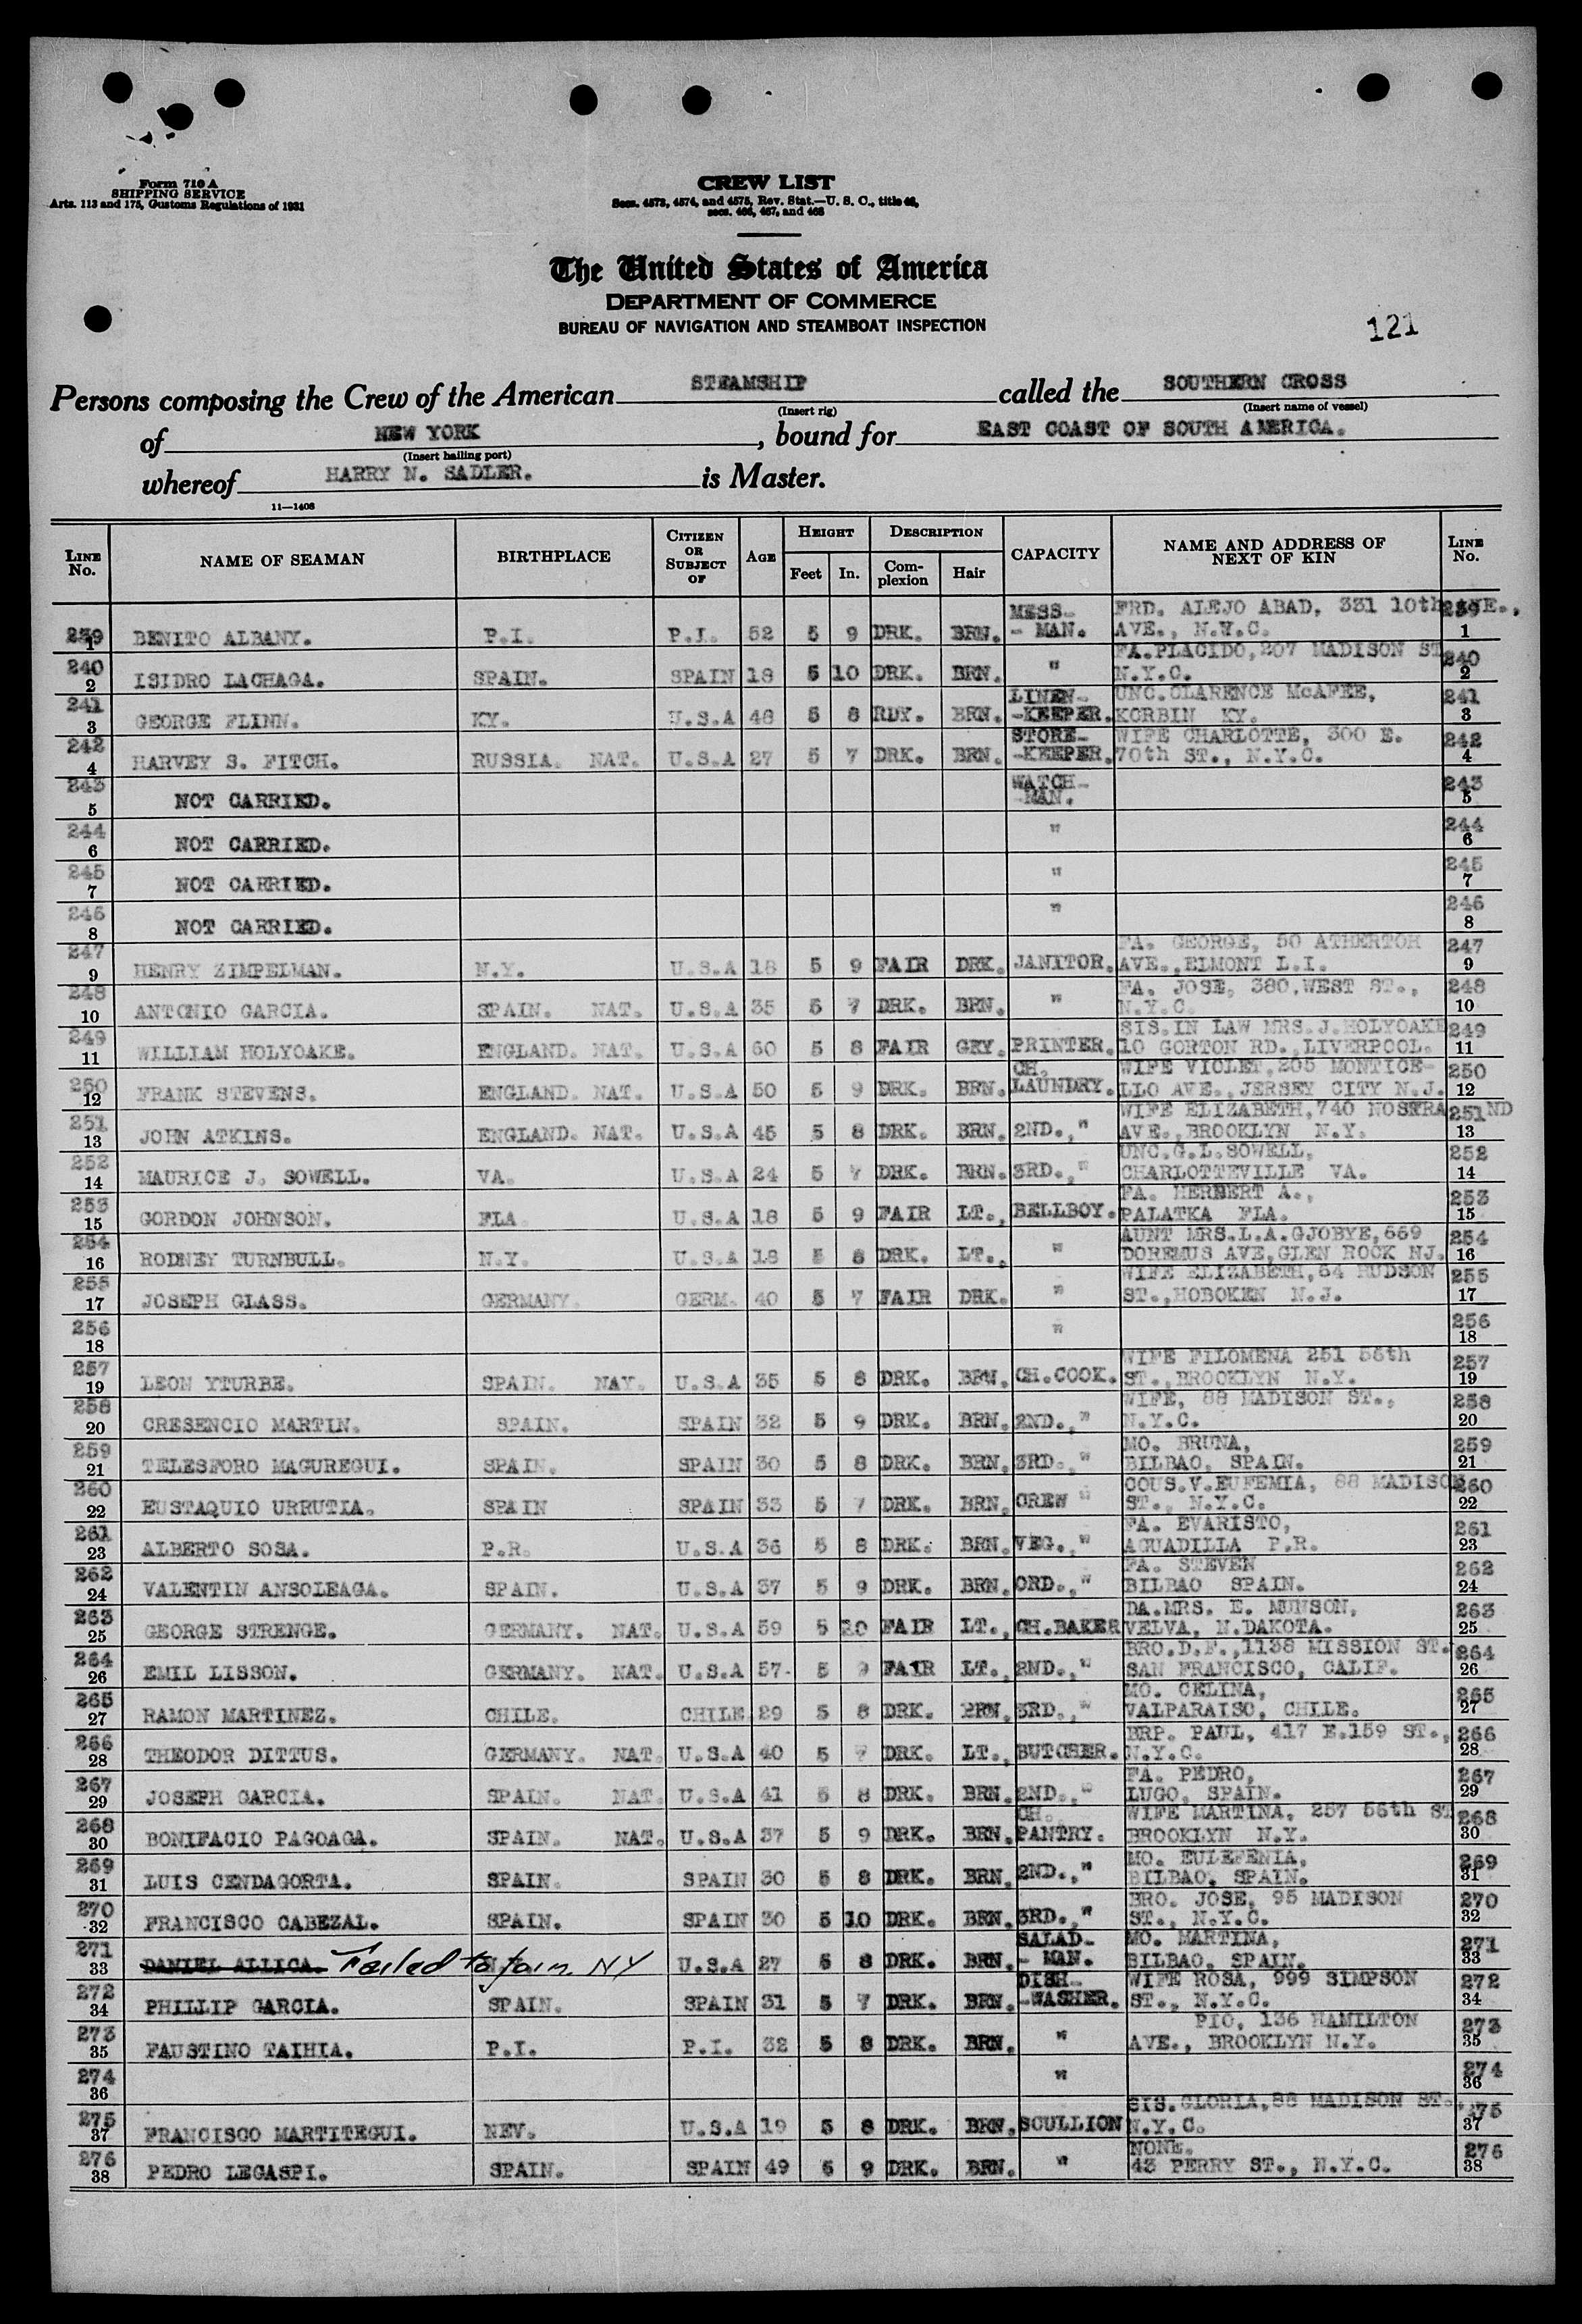 Form 710 A
SHIPPING SERVICE
Arts. 113 and 175, Customs Regulations of 1931
CREW LIST
Secs. 4573, 4574, and 4575, Rev. Stat.—U. S. C., title 46,
secs. 466, 467, and 468
The United States of America
DEPARTMENT OF COMMERCE
BUREAU OF NAVIGATION AND STEAMBOAT INSPECTION
121
Persons composing the Crew of the American STEAMSHIP called the SOUTHERN CROSS
(Insert rig) (Insert name of vessel)
of NEW YORK, bound for EAST COAST OF SOUTH AMERICA.
(Insert hailing port)
whereof HARRY N. SADLER. is Master.
11—1408
LINE No. NAME OF SEAMAN BIRTHPLACE CITIZEN OR SUBJECT OF AGE HEIGHT Feet In. DESCRIPTION Complexion Hair CAPACITY NAME AND ADDRESS OF NEXT OF KIN LINE No.
239 1 BENITO ALBANY. P.I. P.I. 52 5 9 DRK. BRN. MESS- - MAN. FRD. ALEJO ABAD, 331 10th AVE., AVE., N.Y.C. 239 1
240 2 ISIDRO LACHAGA. SPAIN. SPAIN 18 5 10 DRK. BRN. " FA.PLACIDO,207 MADISON ST N.Y.C. 240 2
241 3 GEORGE FLINN. KY. U.S.A 48 5 8 RDY. BRN. LINEN- -KEEPER. UNC.CLARENCE McAFEE, KORBIN KY. 241 3
242 4 HARVEY S. FITCH. RUSSIA. NAT. U.S.A 27 5 7 DRK. BRN. STORE- -KEEPER. WIFE CHARLOTTE, 300 E. 70th ST., N.Y.C. 242 4
243 5 NOT CARRIED. WATCH- -MAN. 243 5
244 6 NOT CARRIED. " 244 6
245 7 NOT CARRIED. " 245 7
246 8 NOT CARRIED. " 246 8
247 9 HENRY ZIMPELMAN. N.Y. U.S.A 18 5 9 FAIR DRK. JANITOR. FA. GEORGE, 50 ATHERTOH AVE.,ELMONT L.I. 247 9
248 10 ANTONIO GARCIA. SPAIN. NAT. U.S.A 35 5 7 DRK. BRN. " FA. JOSE, 380.WEST ST., N.Y.C. 248 10
249 11 WILLIAM HOLYOAKE. ENGLAND. NAT. U.S.A 60 5 8 FAIR GRY. PRINTER. SIS.IN LAW MRS.J.HOLYOAKE 10 GORTON RD.,LIVERPOOL. 249 11
250 12 FRANK STEVENS. ENGLAND. NAT. U.S.A 50 5 9 DRK. BRN. CH. LAUNDRY. WIFE VIOLET,205 MONTICE- LLO AVE.,JERSEY CITY N.J. 250 12
251 13 JOHN ATKINS. ENGLAND. NAT. U.S.A 45 5 8 DRK. BRN. 2ND.," WIFE ELIZABETH,740 NOSTRAND AVE.,BROOKLYN N.Y. 251 13
252 14 MAURICE J. SOWELL. VA. U.S.A 24 5 7 DRK. BRN. 3RD.," UNC.G.L.SOWELL, CHARLOTTEVILLE VA. 252 14
253 15 GORDON JOHNSON. FLA U.S.A 18 5 9 FAIR LT., BELLBOY. FA. HERBERT A., PALATKA FLA. 253 15
254 16 RODNEY TURNBULL. N.Y. U.S.A 18 5 8 DRK. LT., " AUNT MRS.L.A.GJOBYE,669 DOREMUS AVE,GLEN ROCK NJ. 254 16
255 17 JOSEPH GLASS. GERMANY. GERM. 40 5 7 FAIR DRK. " WIFE ELIZABETH,64 HUDSON ST.,HOBOKEN N.J. 255 17
256 18 " 256 18
257 19 LEON YTURBE. SPAIN. NAY. U.S.A 35 5 8 DRK. BRN. CH.COOK. WIFE FILOMENA 251 56th ST.,BROOKLYN N.Y. 257 19
258 20 CRESENCIO MARTIN. SPAIN. SPAIN 32 5 9 DRK. BRN. 2ND.," WIFE, 88 MADISON ST., N.Y.C. 258 20
259 21 TELESFORO MAGUREGUI. SPAIN. SPAIN 30 5 8 DRK. BRN. 3RD.," MO. BRUNA, BILBAO, SPAIN. 259 21
260 22 EUSTAQUIO URRUTIA. SPAIN SPAIN 33 5 7 DRK. BRN. CREW " COUS.V.EUFEMIA, 88 MADISON ST., N.Y.C. 260 22
261 23 ALBERTO SOSA. P.R. U.S.A 36 5 8 DRK. BRN. VEG.," FA. EVARISTO, AGUADILLA P.R. 261 23
262 24 VALENTIN ANSOLEAGA. SPAIN. U.S.A 37 5 9 DRK. BRN. ORD.," FA. STEVEN BILBAO SPAIN. 262 24
263 25 GEORGE STRENGE. GERMANY. NAT. U.S.A 59 5 FAIR LT., CH.BAKER DA.MRS. E. MUNSON, VELVA, N.DAKOTA. 263 25
264 26 EMIL LISSON. GERMANY. NAT. U.S.A 57 5 9 FAIR LT., 2ND.," BRO.D.F.,1138 MISSION ST. SAN FRANCISCO, CALIF. 264 26
265 27 RAMON MARTINEZ. CHILE. CHILE 29 5 8 DRK. BRN. 3RD.," MO. CELINA, VALPARAISO, CHILE. 265 27
266 28 THEODOR DITTUS. GERMANY. NAT. U.S.A 40 5 7 DRK. LT., BUTCHER. BRP. PAUL, 417 E.159 ST., N.Y.C. 266 28
267 29 JOSEPH GARCIA. SPAIN. NAT. U.S.A 41 5 8 DRK. BRN. 2ND.," FA. PEDRO, LUGO, SPAIN. 267 29
268 30 BONIFACIO PAGOAGA. SPAIN. NAT. U.S.A 37 5 9 DRK. BRN. CH. PANTRY. WIFE MARTINA, 257 56th ST BROOKLYN N.Y. 268 30
269 31 LUIS CENDAGORTA. SPAIN. SPAIN 30 5 8 DRK. BRN. 2ND.," MO. EULEFENIA, BILBAO, SPAIN. 269 31
270 32 FRANCISCO CABEZAL. SPAIN. SPAIN 30 5 10 DRK. BRN. 3RD.," BRO. JOSE, 95 MADISON ST., N.Y.C. 270 32
271 33 DANIEL ALLICA. Failed to join. NY U.S.A 27 5 8 DRK. BRN. SALAD- - MAN. MO. MARTINA, BILBAO, SPAIN. 271 33
272 34 PHILLIP GARCIA. SPAIN. SPAIN 31 5 7 DRK. BRN. DISH- -WASHER. WIFE ROSA, 999 SIMPSON ST., N.Y.C. 272 34
273 35 FAUSTINO TAIHIA. P.I. P.I. 32 5 8 DRK. BRN. " PIO, 136 HAMILTON AVE., BROOKLYN N.Y. 273 35
274 36 " 274 36
275 37 FRANCISCO MARTITEGUI. NEV. U.S.A 19 5 8 DRK. BRN. SCULLION SIS.GLORIA,88 MADISON ST., N.Y.C. 275 37
276 38 PEDRO LEGASPI. SPAIN. SPAIN 49 5 9 DRK. BRN. " NONE. 43 PERRY ST., N.Y.C. 276 38